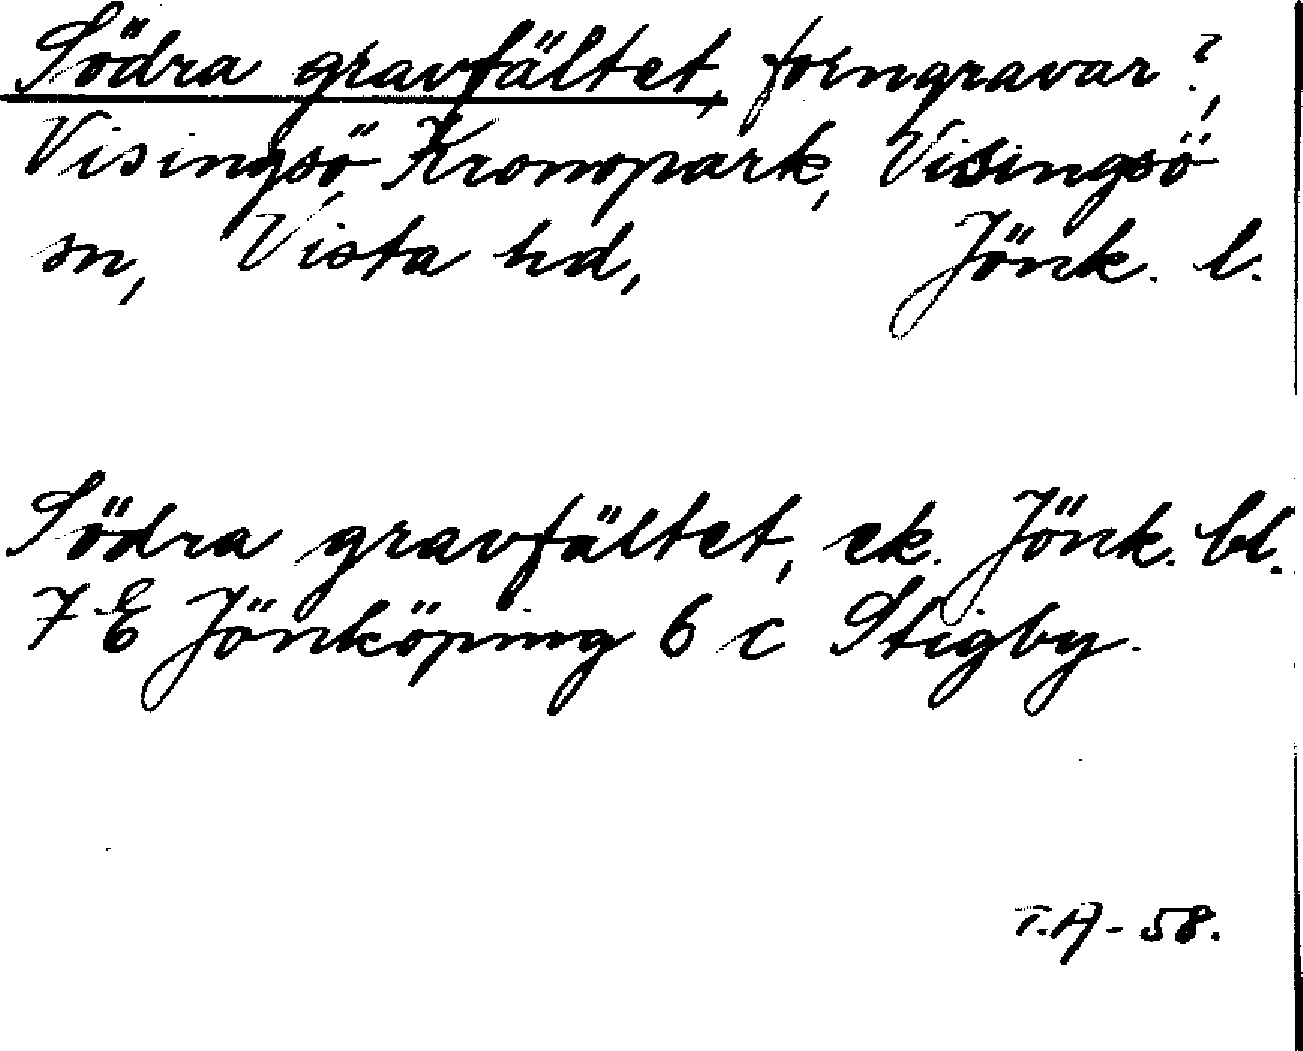 Södra gravfältet, forngravar?,
Visingsö Kronopark, Visingsö
sn, Vista hd, Jönk. l.
Södra gravfältet, ek. Jönk. bl.
7 E Jönköping 6 c Stigby.
T.A - 58.